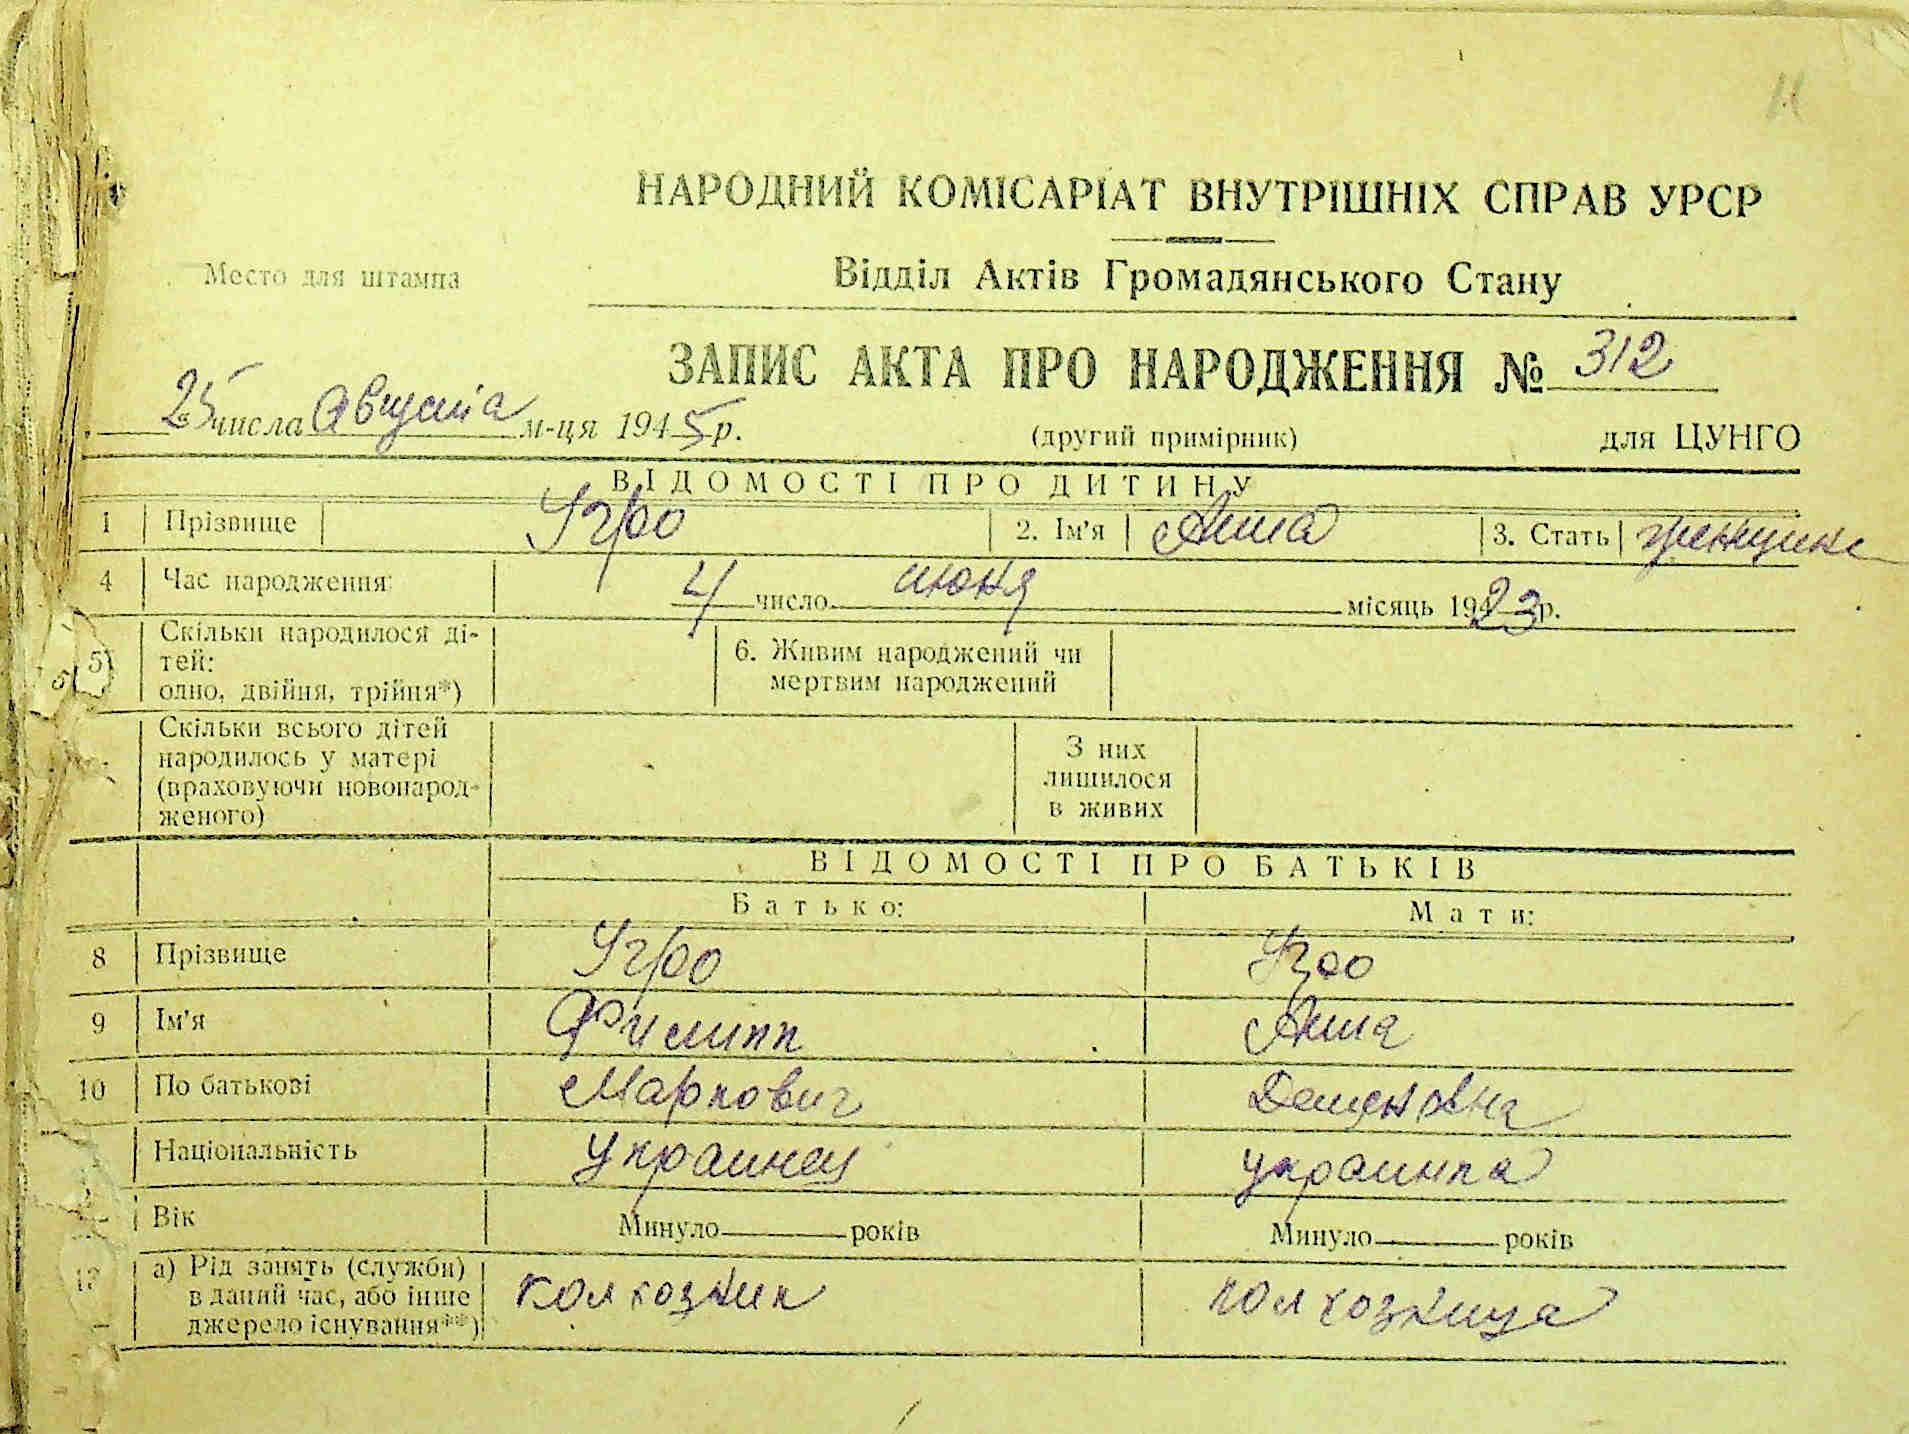 11
НАРОДНИЙ КОМІСАРІАТ ВНУТРІШНІХ СПРАВ УРСР
Место для штампа
Відділ Актів Громадянського Стану
ЗАПИС АКТА ПРО НАРОДЖЕННЯ № 312
25 числа Августа м-ця 1945 р.
(другий примірник) для ЦУНГО
ВІДОМОСТІ ПРО ДИТИНУ
1 Прізвище Угро 2. Ім'я Анна 3. Стать
4 Час народження: 4 число июня місяць 1923 р.
5 Скільки народилося ді-
тей:
одно, двійня, трійня*)
6. Живим народжений чи
мертвим народжений
Скільки всього дітей
народилось у матері
(враховуючи новонарод-
женого)
З них
лишилося
в живих
ВІДОМОСТІ ПРО БАТЬКІВ
Батько: Мати:
8 Прізвище Угро Угро
9 Ім'я Филипп Анна
10 По батькові Маркович
Національність украинец украинка
Вік Минуло років Минуло років
а) Рід занять (служби)
в даний час, або інше
джерело існування**)
колхозник колхозница